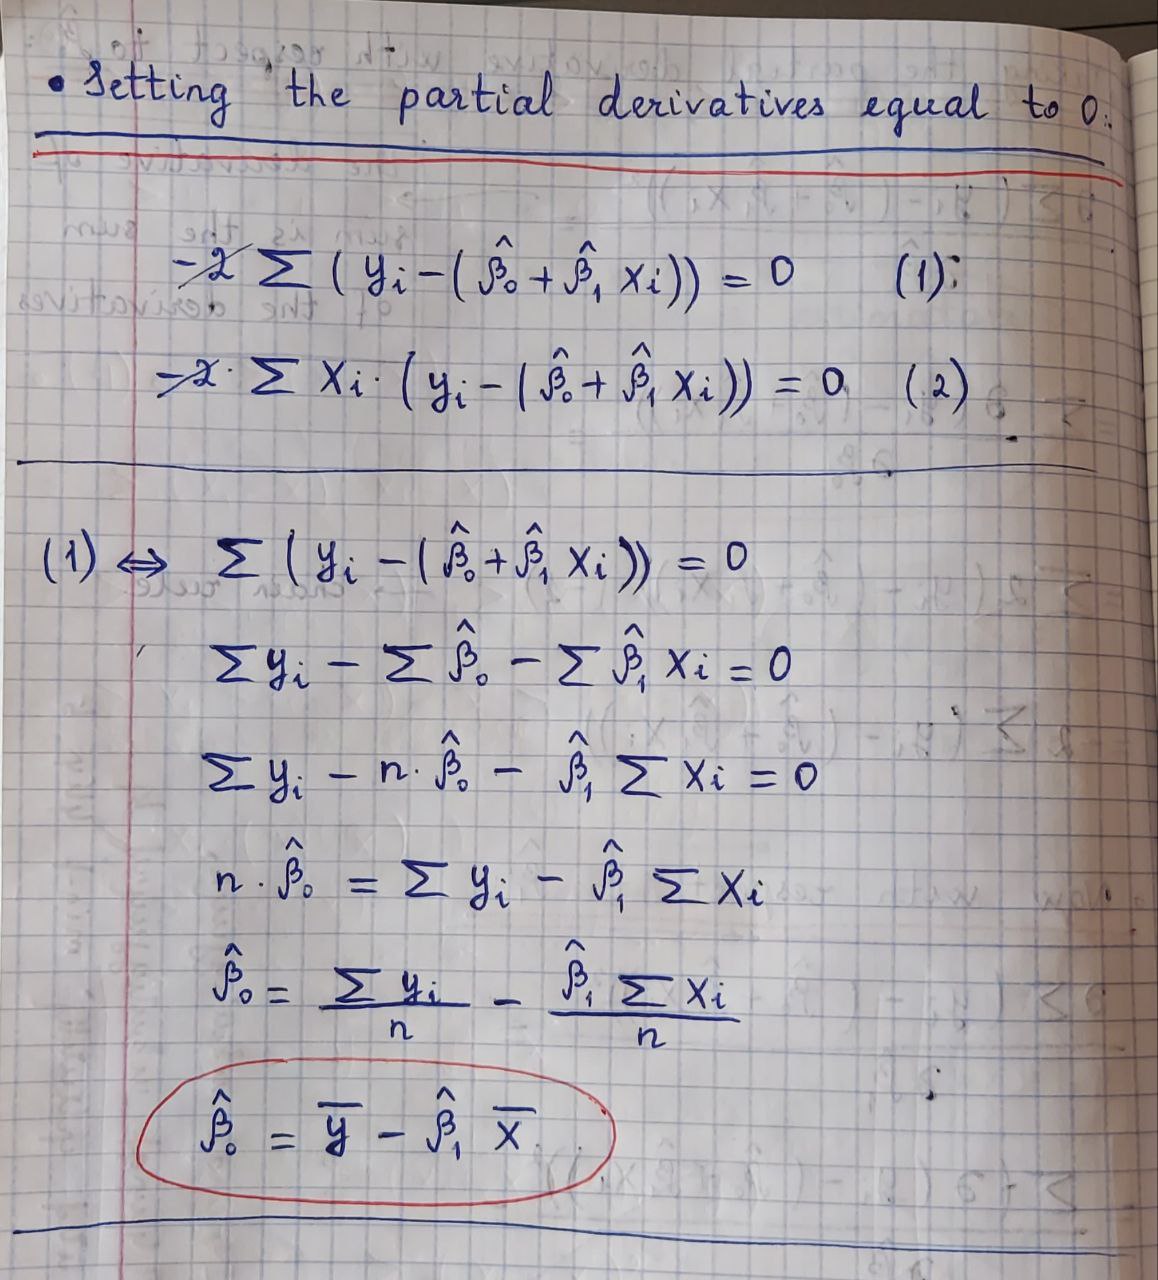 • Setting the partial derivatives equal to 0:
-2 Σ (yi - (β̂₀ + β̂₁ xi)) = 0 (1)
-2 · Σ xi · (yi - (β̂₀ + β̂₁ xi)) = 0 (2)
(1) ⇔ Σ (yi - (β̂₀ + β̂₁ xi)) = 0
Σ yi - Σ β̂₀ - Σ β̂₁ xi = 0
Σ yi - n · β̂₀ - β̂₁ Σ xi = 0
n · β̂₀ = Σ yi - β̂₁ Σ xi
β̂₀ = Σ yi / n - β̂₁ Σ xi / n
β̂₀ = y̅ - β̂₁ x̅